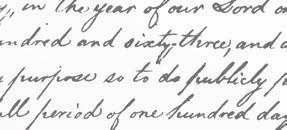 in the year of our Lord
and sixty-three, and
purpose so to do publicly
period of one hundred